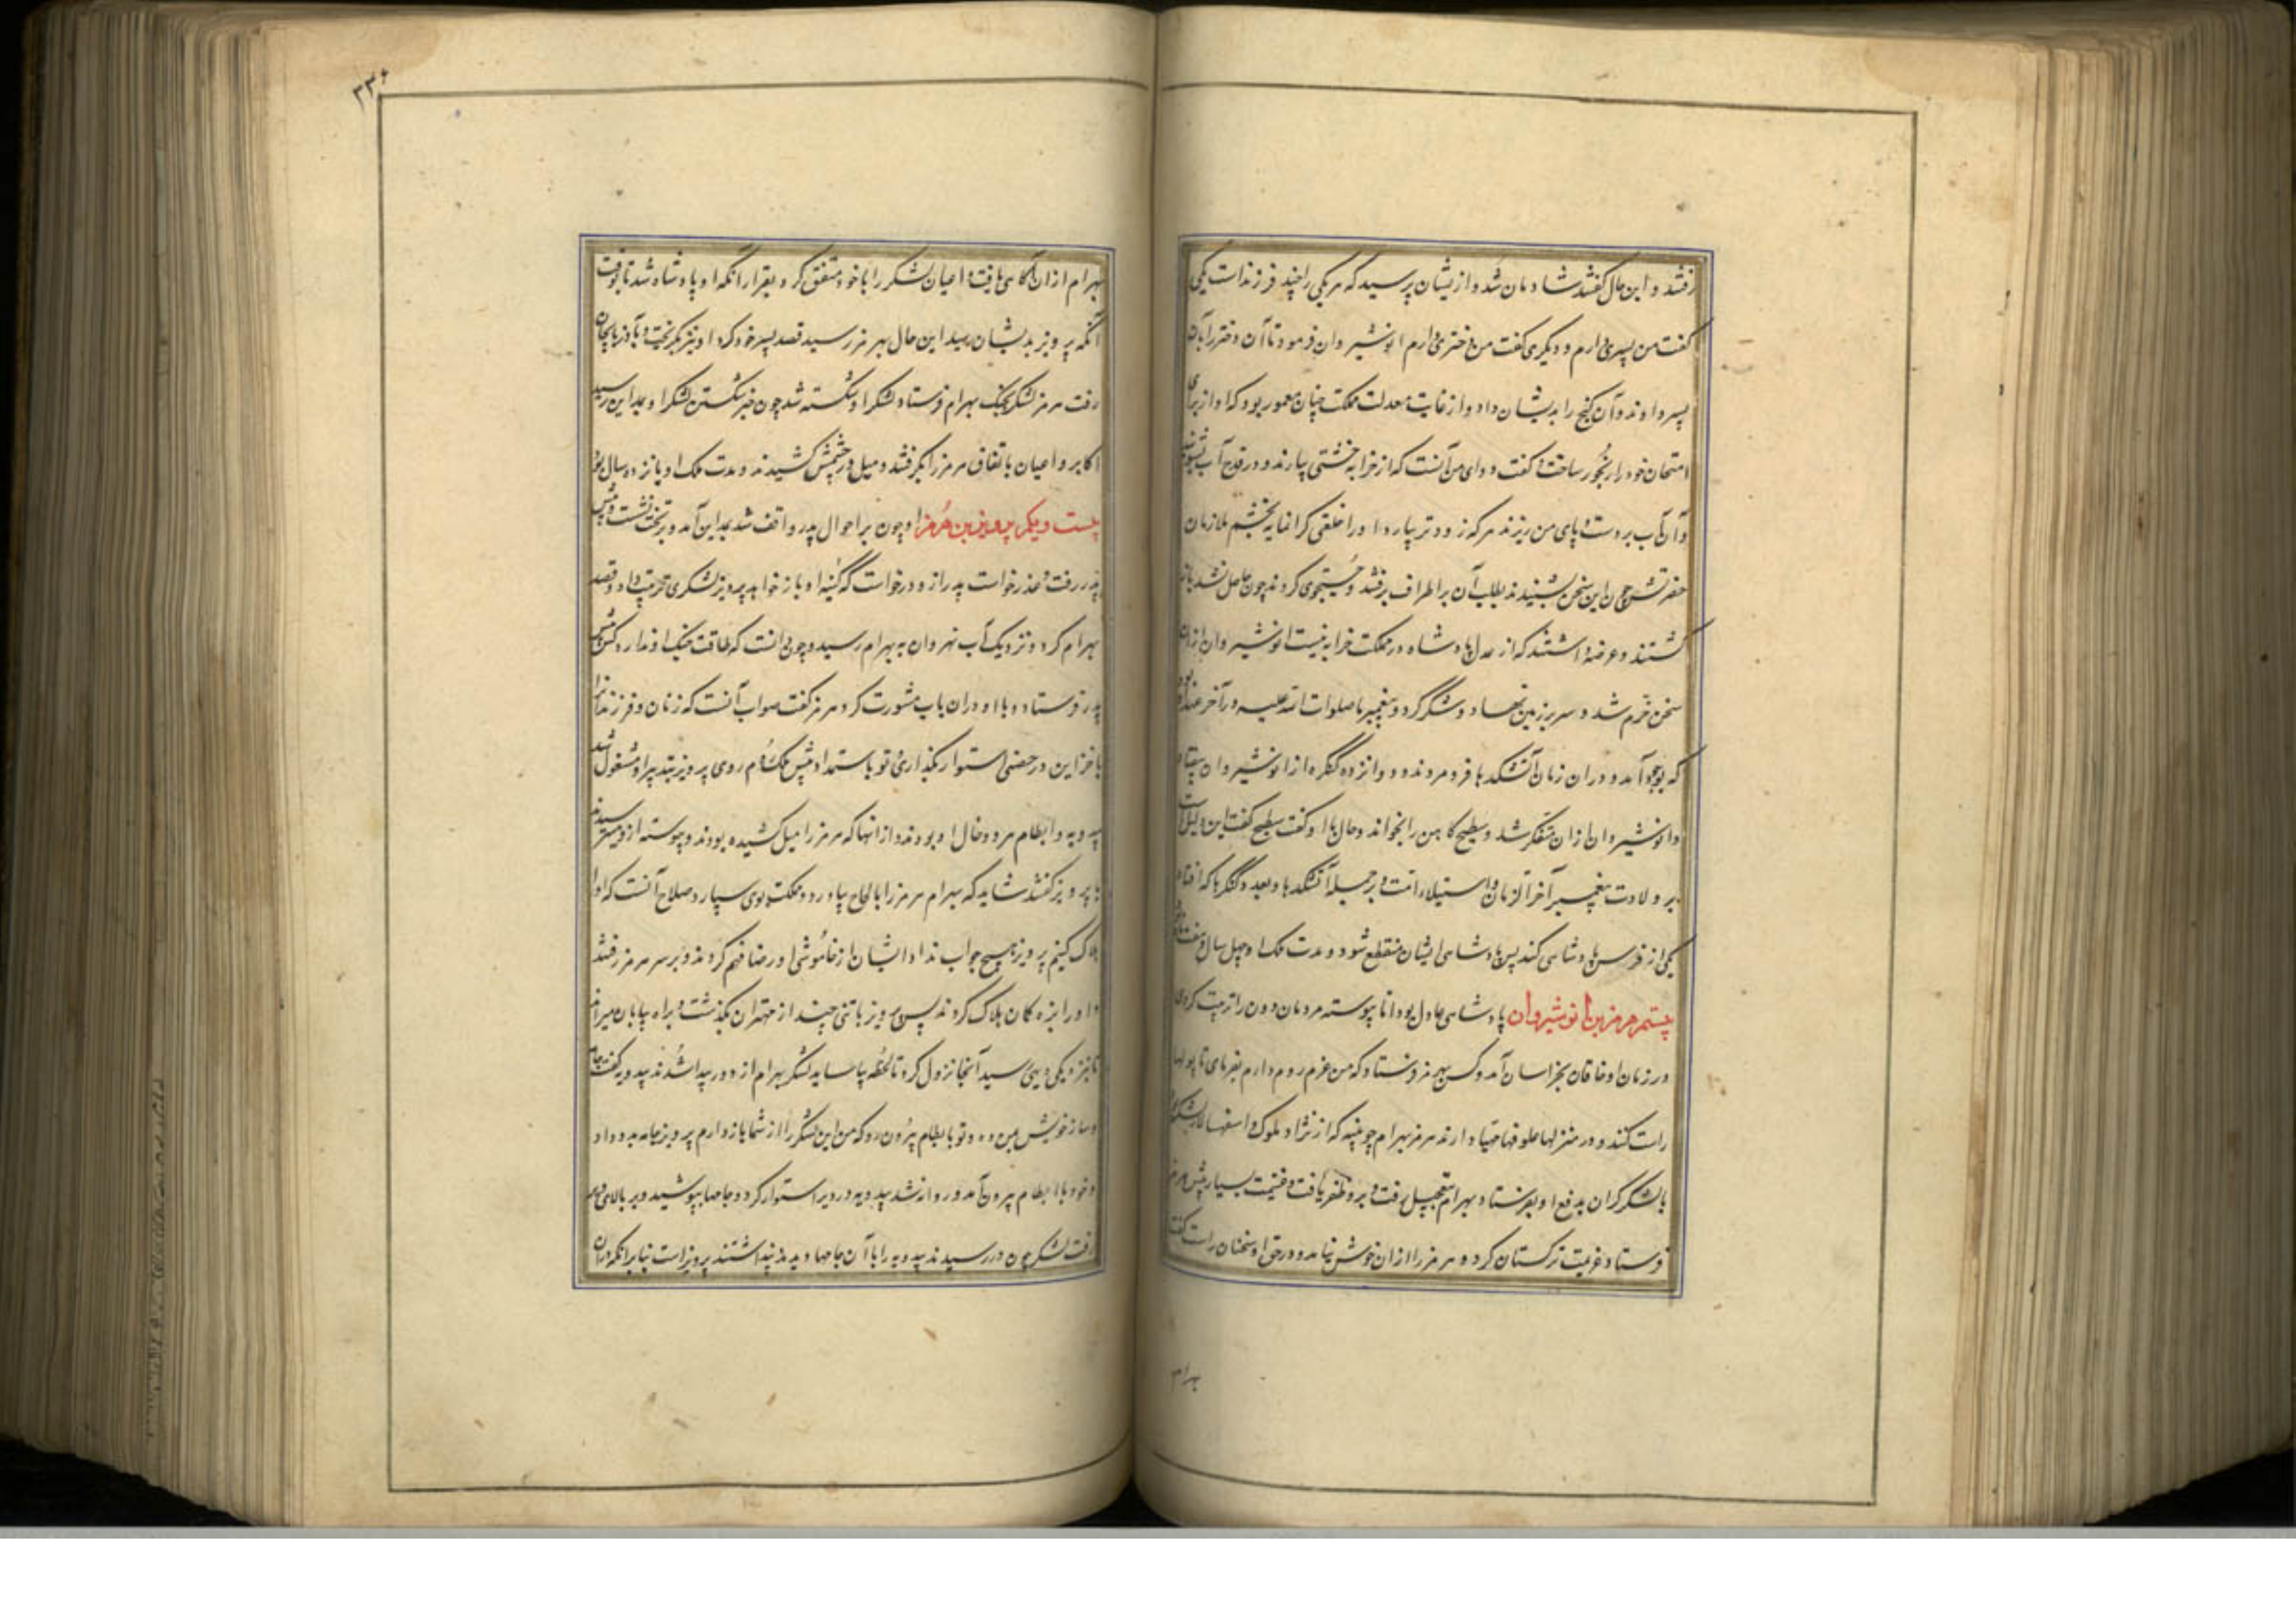 رفتند و این حال گفتند شادمان شد و از یشان پرسید که هر یکی را چند فرزند است یکی
گفت من پسری دارم و دیگری گفت من دختری دارم انوشیروان فرمود تا آن دختر را بآن
پسر دادند و آن گنج را بدیشان داد و از غایت معدلت مملکت چنان معمور بود که او از برای
امتحان خود را رنجور ساخت و گفت دوای من آنست که از خرابه خشتی بیارند و در قدح آب بشویند
و آن آب بر دست و پای من ریزند هر که زودتر بیارد او را خلعتی گرانمایه بخشم ملازمان
حضرتش چون این سخن بشنیدند بطلب آن بر اطراف برفتند و جستجوی کردند چون حاصل نشد باز
گشتند و عرضه داشتند که از عدل پادشاه در مملکت خرابه نیست انوشیروان از آن
سخن خرم شد و سر بر زمین نهاد و شکر کرد و پیغمبر ما صلوات الله علیه در آخر عهد او بود
که بوجود آمد و در آن زمان آتشکدها فرو مردند و دوازده کنگره از انوشیروان بیفتاد
و انوشیروان از آن متفکر شد و سطیح کاهن را بخواند و حال با او گفت سطیح گفت این دلیل است
بر ولادت پیغمبر آخر الزمان و استیلاء امت وی بر جمله آتشکدها و بعدد کنگرها که افتاد
یکی از فرس پادشاهی کند پس پادشاهی ایشان منقطع شود و مدت ملک او چهل سال و هفت ماه
بیستم هرمز بن انوشیروان پادشاهی عادل بود اما پیوسته مردمان دون را تربیت کردی
در زمان او خاقان بخراسان آمد و کس بهرمز فرستاد که من عزم روم دارم بفرمای تا پولها
راست کنند و در منزلها علوفها مهیا دارند هرمز بهرام چوبینه که از نژاد ملوک و اسفهسالار لشکر
با لشکر گران بدفع او بفرستاد بهرام بتعجیل رفت و برو ظفر یافت و غنیمت بسیار پیش هرمز
فرستاد و عزیمت ترکستان کرد و هرمز را از آن خوش نیامد و در حق او سخنان راست گفت
بهرام
۳۳۰
بهرام از آن آگاهی یافت و اعیان لشکر را با خود متفق کرد و بقرار آنکه او پادشاه شد تا بوقت
آنکه پرویز بدیشان رسید این حال بهرمز رسید قصد پسر خود کرد او نیز بگریخت و بآذربایجان
رفت هرمز لشکر بجنگ بهرام فرستاد لشکر او شکسته شد چون خبر شکستن لشکر او بمداین رسید
اکابر و اعیان باتفاق هرمز را بگرفتند و میل در چشمش کشیدند و مدت ملک او یازده سال بود
بیست و یکم پرویز بن هرمز او چون بر احوال پدر واقف شد بمداین آمد و بر تخت نشست و پیش
پدر رفت و عذر خواست پدر ازو درخواست که کینه او باز خواهد پرویز لشکری ترتیب داد و قصد
بهرام کرد و نزدیک آب نهروان به بهرام رسید و چون دانست که طاقت جنگ او ندارد کس پیش
پدر فرستاد و با او در آن باب مشورت کرد هرمز گفت صواب آنست که زنان و فرزندان را
با خزاین در حصنی استوار بگذاری و تو باستمداد پیش ملک روم روی پرویز بتدبیر او مشغول شد
بندویه و بسطام هر دو خال او بودند و از آنها که هرمز را میل کشیده بودند و پیوسته ازو میترسیدند
با پرویز گفتند شاید که بهرام هرمز را بالحاح بیاورد و مملکت بوی سپارد صلاح آنست که او را
هلاک کنیم پرویز هیچ جواب نداد ایشان از خاموشی او رضا فهم کردند و بر سر هرمز رفتند
و او را بزه کمان هلاک کردند پس پرویز با تنی چند از مهتران بگذشت و براه بیابان میراند
تا بنزدیکی دیری رسید آنجا نزول کرد تا لحظه بیاساید لشکر بهرام از دور پیدا شدند بندویه گفت جامه
و ساز خویش بمن ده و تو با بسطام بیرون رو که من این لشکر را از شما باز دارم پرویز جامه بدو داد
و خود با بسطام بیرون آمد و روانه شد بندویه در دیر استوار کرد و جامها بپوشید و بر بالای دیر
رفت لشکر چون در رسیدند بندویه را با آن جامها دیدند پنداشتند پرویز است بنابر آنکه در آن